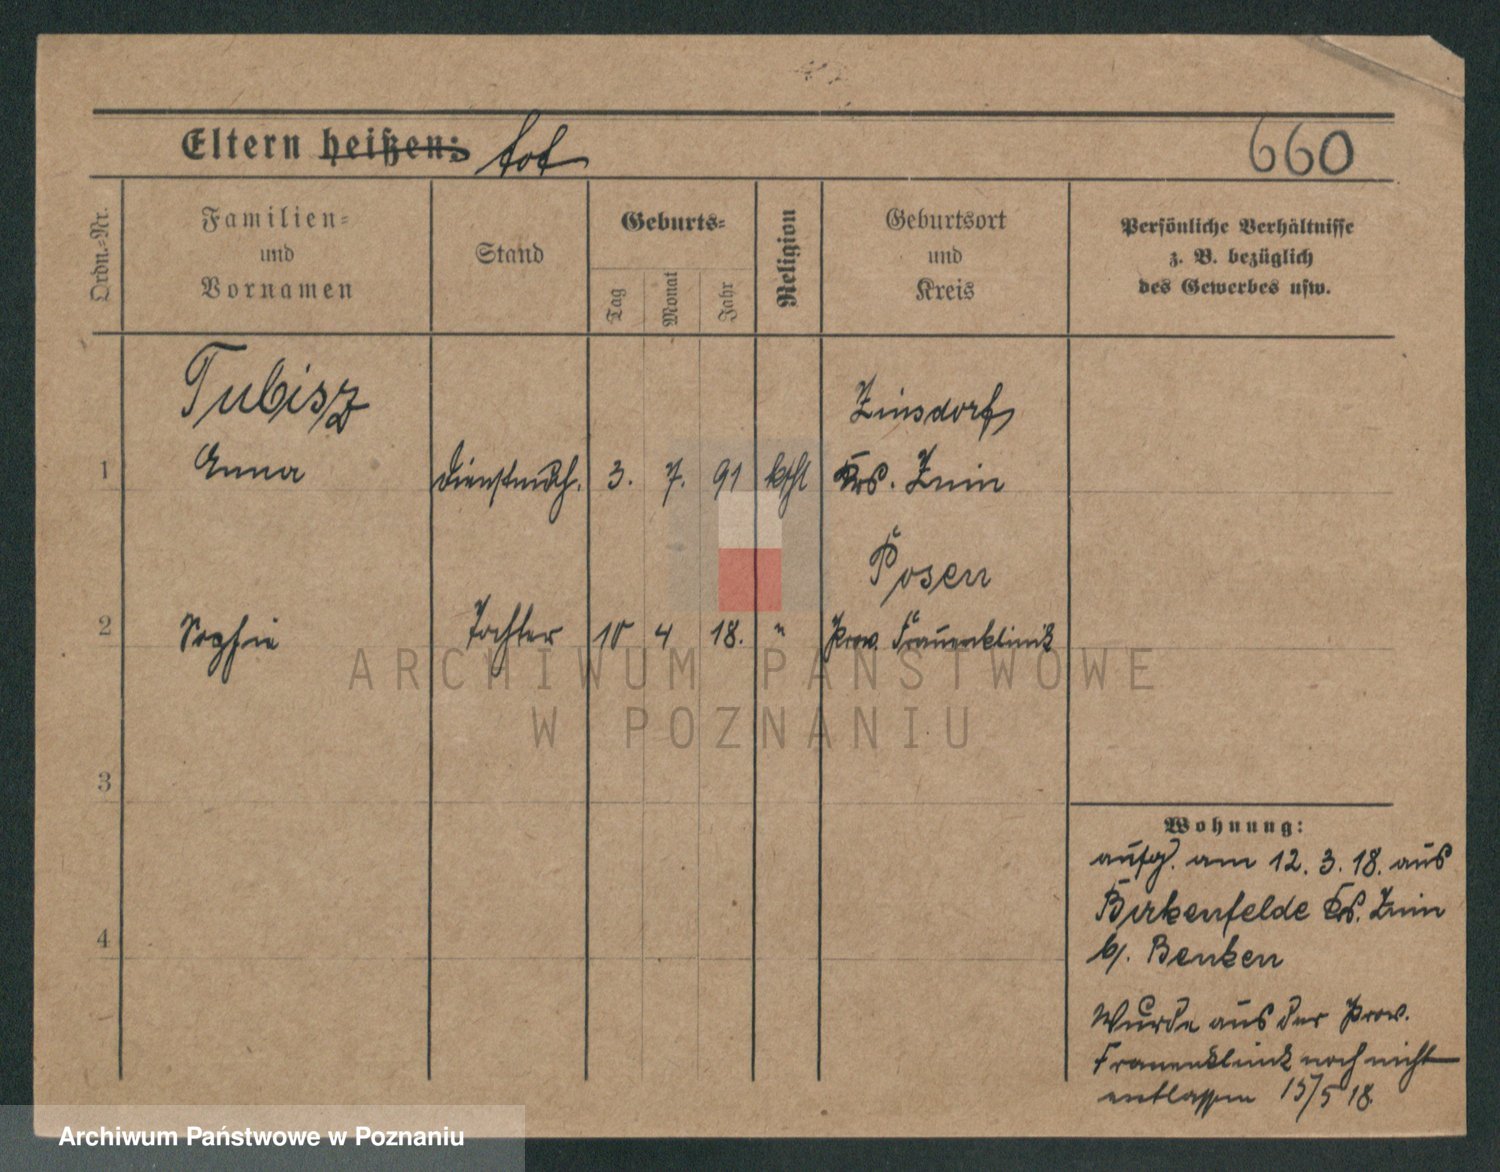 Eltern heißen: tot
660
Ordn.-Nr.
Familien-
und
Vornamen
Stand
Geburts-
Tag
Monat
Jahr
Religion
Geburtsort
und
Kreis
Persönliche Verhältnisse
z. B. bezüglich
des Gewerbes usw.
Tubisz
Zinsdorf
1 Anna Dienstmdch. 3. 7. 91 kthl Krs. Znin
Posen
2 Sophie Tochter 10 4 18. " Prov. Frauenklinik
ARCHIWUM PAŃSTWOWE
W POZNANIU
3
4
Wohnung:
aufg. am 12.3.18. aus
Birkenfelde Krs. Znin
b/. Benken
Wurde aus der Prov.
Frauenklinik noch nicht
entlassen 15/5 18.
Archiwum Państwowe w Poznaniu